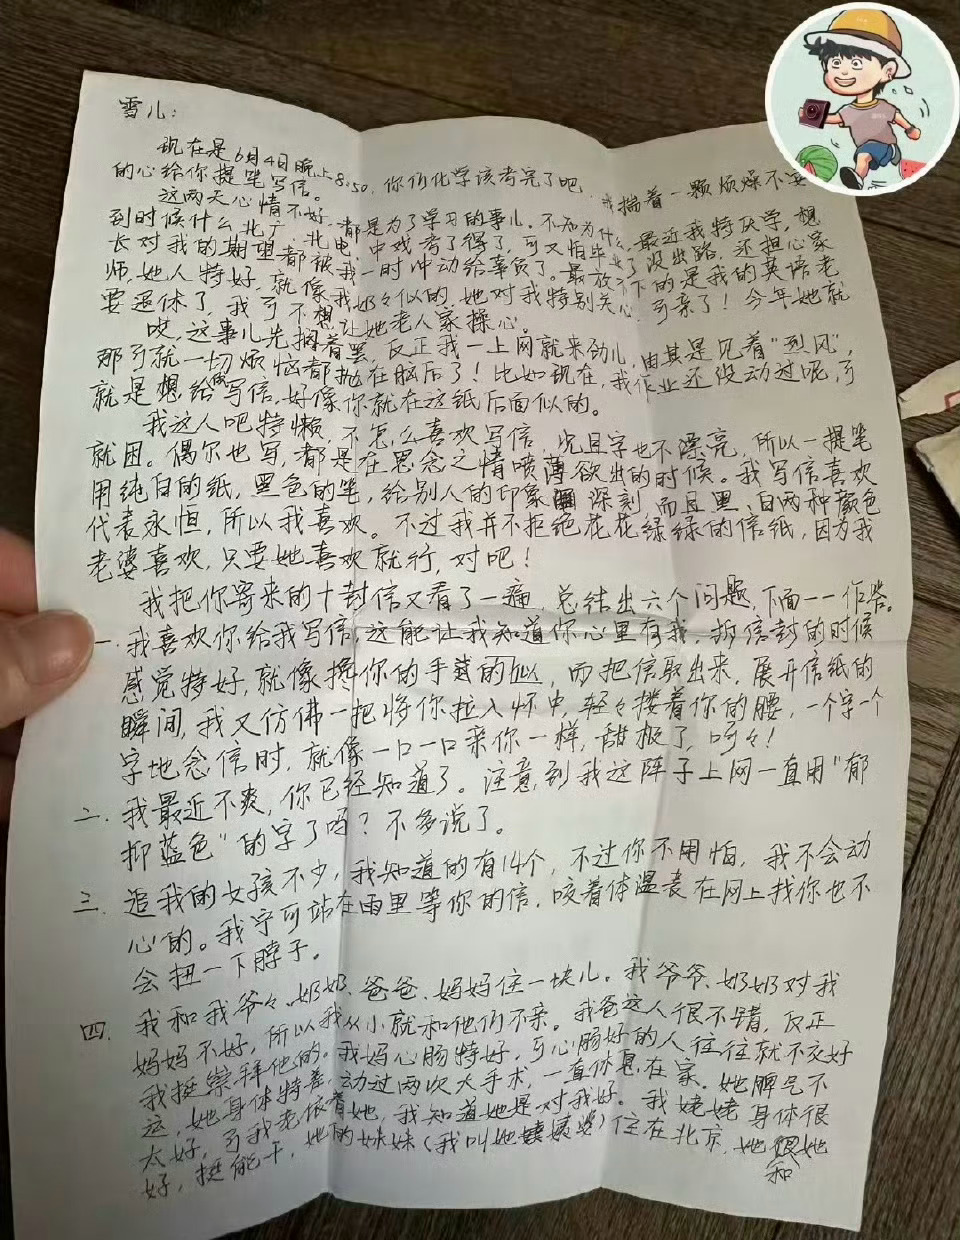 雪儿：
现在是6月4日晚上8:50，你们化学该考完了吧，我揣着一颗烦燥不
的心给你提笔写信。
这两天心情不好，都是为了学习的事儿。不知为什么，最近我特厌学，想
到时候什么北广、北电、中戏考了得了，可又怕毕业了没出路，还担心家
长对我的期望都被我一时冲动给辜负了。最放不下的是我的英语老
师，她人特好，就像我奶々似的，她对我特别关心，可亲了！今年她就
要退休了，我可不想让她老人家操心。
哎，这事儿先搁着罢，反正我一上网就来劲儿，由其是见着“烈风”，
那可就一切烦恼都抛在脑后了！比如现在，我作业还没动过呢，可
就是想给你写信，好像你就在这纸后面似的。
我这人吧特懒，不怎么喜欢写信，况且字也不漂亮，所以一提笔
就困。偶尔也写，都是在思念之情喷薄欲出的时候。我写信喜欢
用纯白的纸，黑色的笔，给别人的印象深刻，而且黑、白两种颜色
代表永恒，所以我喜欢。不过我并不拒绝花花绿绿的信纸，因为我
老婆喜欢，只要她喜欢就行，对吧！
我把你寄来的十封信又看了一遍，总结出六个问题，下面一一作答。
一、我喜欢你给我写信，这能让我知道你心里有我，拆信封的时候
感觉特好，就像搀你的手试的似，而把信取出来，展开信纸的
瞬间，我又仿佛一把将你拉入怀中，轻々搂着你的腰，一个字一个
字地念信时，就像一口一口亲你一样，甜极了，呵々！
二、我最近不爽，你已经知道了。注意到我这阵子上网一直用“郁
抑蓝色”的字了吗？不多说了。
三、追我的女孩不少，我知道的有14个，不过你不用怕，我不会动
心的。我宁可站在雨里等你的信，咬着体温表在网上找你也不
会扭一下脖子。
四、我和我爷々、奶奶、爸爸、妈妈住一块儿。我爷爷、奶奶对我
妈妈不好，所以我从小就和他们不亲。我爸这人很不错，反正
我挺崇拜他的。我妈心肠特好，可心肠好的人往往就不交好
运，她身体特差，动过两次大手术，一直休息在家。她脾气不
太好，可我老依着她，我知道她是对我好。我姥姥身体很
好，挺能干，她的妹妹（我叫她姨婆）住在北京，她和她